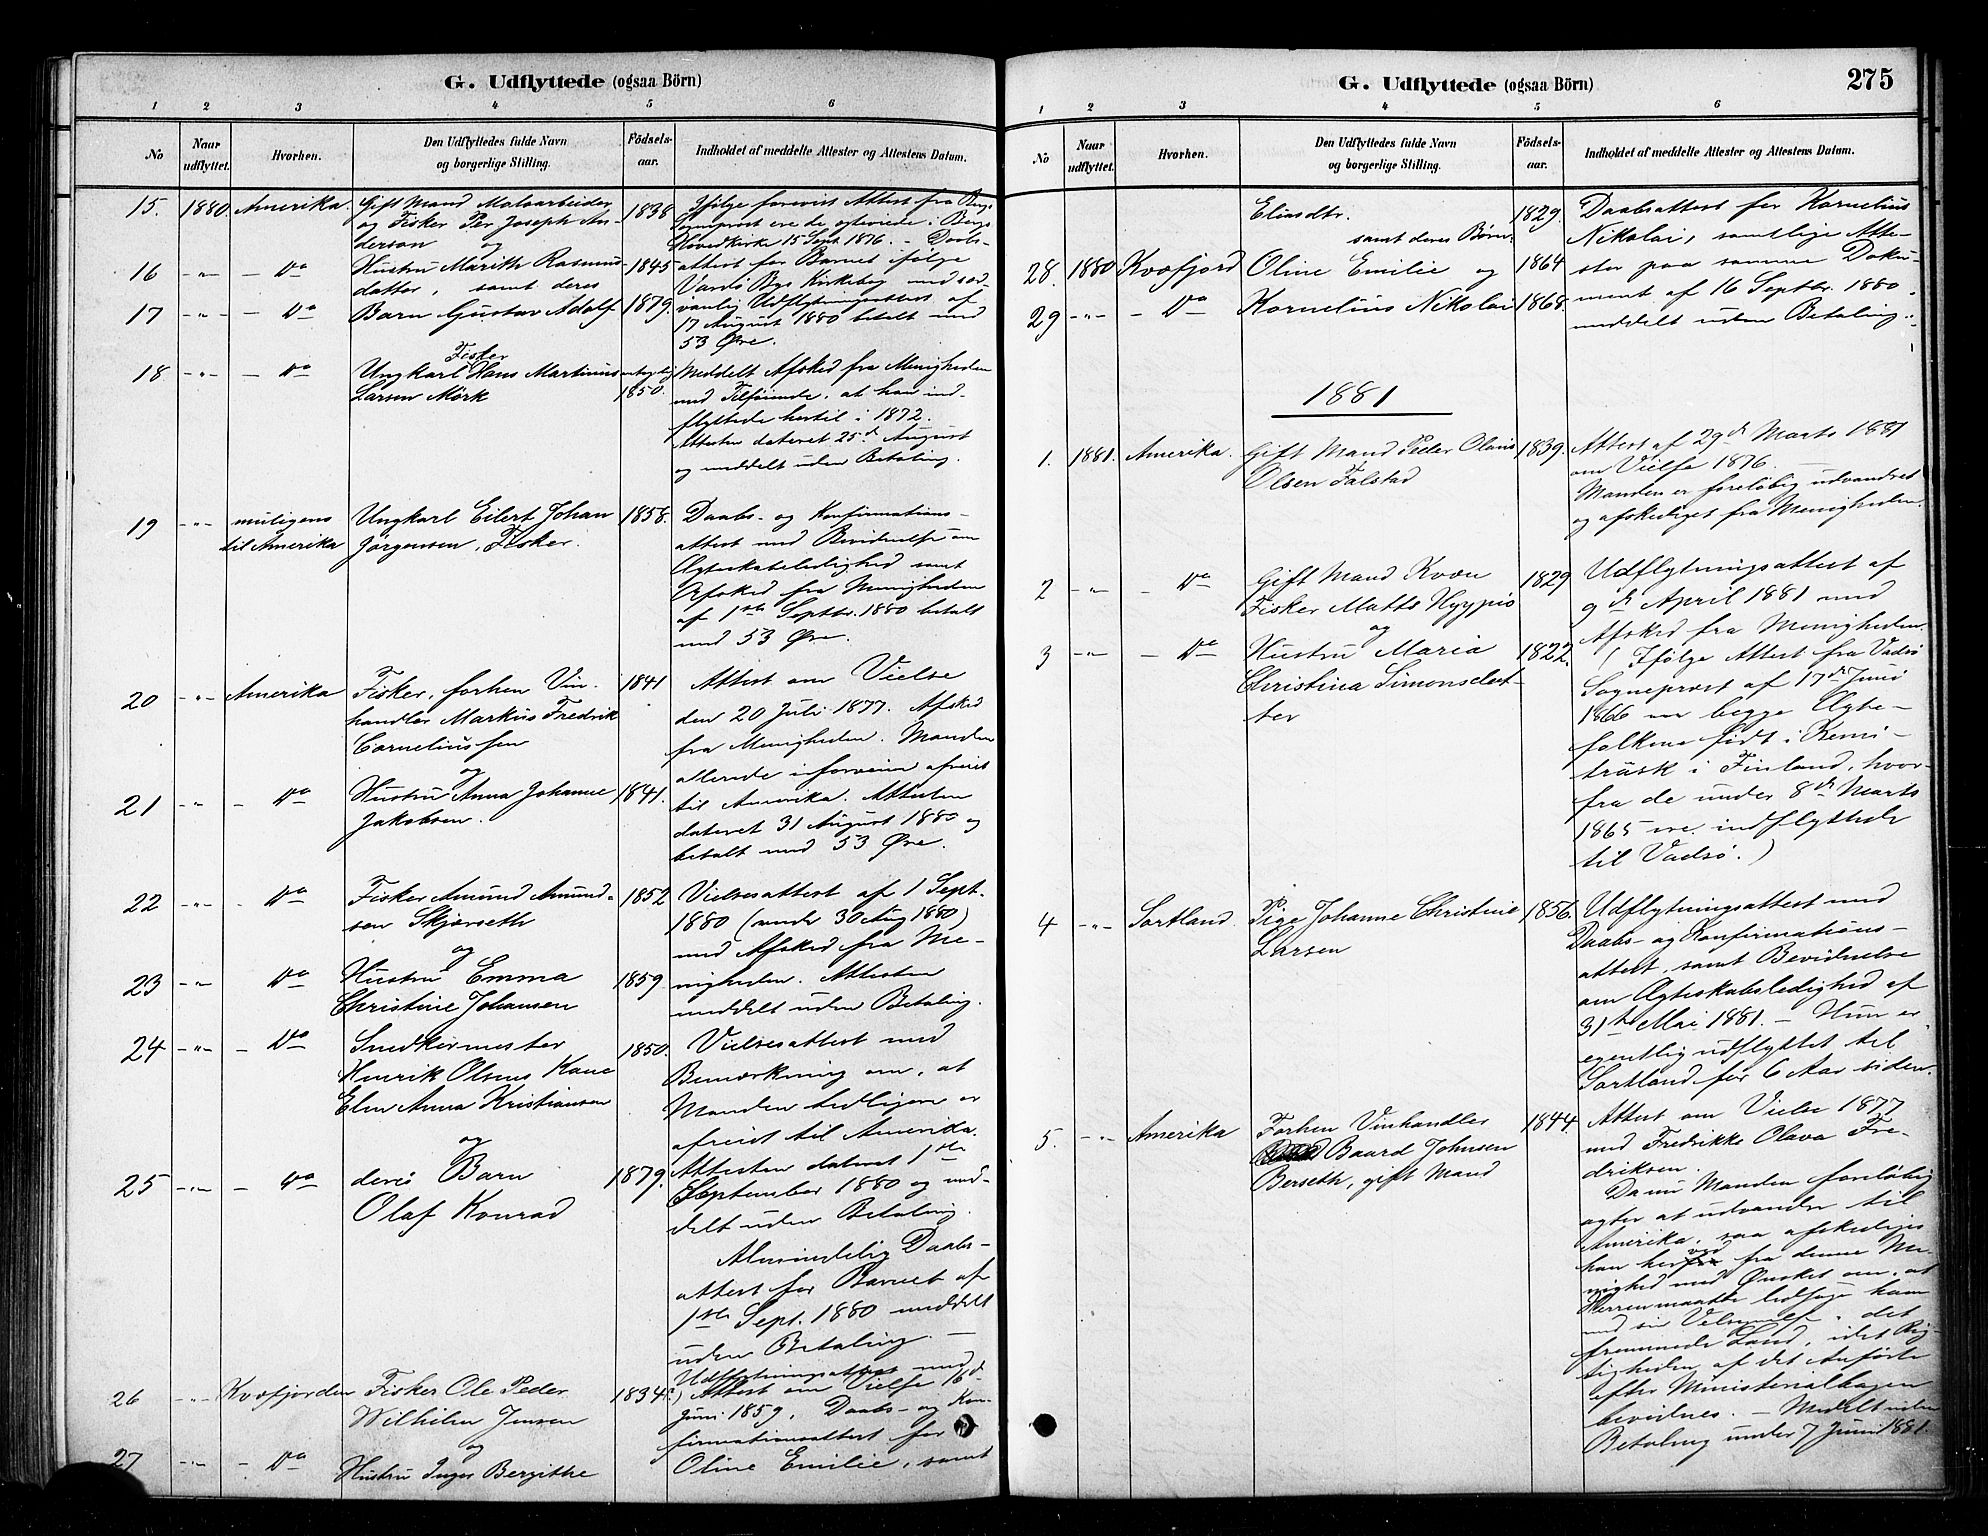 G. Udflyttede (ogsaa Börn)
1 2 3 4 5 6
No
Naar udflyttet.
Hvorhen.
Den Udflyttedes fulde Navn
og borgerlige Stilling.
Födsels-
aar.
Indholdet af meddelte Attester og Attestens Datum.
15. 1880. Amerika. Gift Mand Malaarbeider 1838
og Fisker Per Joseph An-
derson og
16 -"- - Do Hustru Marith Rasmus- 1845
datter, samt deres
17 -"- - Do Barn Gustav Adolf 1879.
Ifølge forevist Attest fra Bergs
Sogneprest ere de ægteviede i Bergs
Hovedkirke 15 Sept. 1876. - Daabs-
attest for Barnet ifølge
Vardö Bys Kirkebog med sæd-
vanlig Udflytningsattest af
17 August 1880 betalt med
53 Øre.
18 -"- - Do Fisker
Ungkarl Hans Martinus
Larsen Mörk 1850.
Meddelt Afsked fra Menigheden
med Tilføiende, at han ind-
flyttede hertil i 1872.
Attesten dateret 25de August
og meddelt uden Betaling.
19 -"- muligens Ungkarl Eilert Johan 1858.
til Amerika Jörgensen, Fisker.
Daabs- og Konfirmations-
attest med Bevidnelse om
Ægteskabsledighed samt
Afsked fra Menigheden
af 1ste Septbr. 1880 betalt
med 53 Øre.
20 -"- Amerika Fisker, forhen Vin- 1841
handler Markus Fredrik
Corneliussen
og
21 -"- - Do Hustru Anna Johanne 1841.
Jakobsen.
Attest om Vielse
den 20 Juli 1877. Afsked
fra Menigheden. Manden
allerede iforveien afreist
til Amerika. Attesten
dateret 31 August 1880 og
betalt med 53 Øre.
22 -"- - Do Fisker Amund Amund- 1852
sen Skjörseth
og
23 -"- - Do Hustru Emma 1859
Christine Johansen
Vielsesattest af 1 Sept.
1880 (under 30 Aug 1880)
med Afsked fra Me-
nigheden. Attesten
meddelt uden Betaling.
24 -"- - Do Snedkermester 1850.
Henrik Olsens Kone
Elen Anna Kristiansen
og
25 -"- - Do deres Barn 1879.
Olaf Konrad
Vielsesattest med
Bemærkning om, at
Manden tidligere er
afreist til Amerika.
Attesten dateret 1ste
September 1880 og med-
delt uden Betaling.
Almindelig Daabs-
attest for Barnet af
1ste Sept. 1880 meddelt
uden Betaling. -
26 -"- Kvæfjorden Fisker Ole Peder 1834.
Wilhelm Jensen
og
27 -"- - Do Hustru Inger Bergithe
Udflytningsattest med
Attest om Vielse 16de
Juni 1859, Daabs- og Kon-
firmationsattest for
Oline Emilie, samt
G. Udflyttede (ogsaa Börn) 275
1 2 3 4 5 6
No
Naar udflyttet.
Hvorhen.
Den Udflyttedes fulde Navn
og borgerlige Stilling.
Födsels-
aar.
Indholdet af meddelte Attester og Attestens Datum.
Eliasdtr. 1829.
samt deres Børn:
28. 1880 Kvæfjord Oline Emilie og 1864
29 -"- - Do Kornelius Nikolai 1868.
Daabsattest for Kornelius
Nikolai, samtlige Atte-
ster paa samme Doku-
ment af 16 Septbr. 1880.
meddelt uden Betaling.
1881
1. 1881. Amerika. Gift Mand Peder Olaus 1839.
Olsen Falstad
Attest af 29de Marts 1881
om Vielse 1876. -
Manden er foreløbig udvandret
og afskediget fra Menigheden.
2 -"- - Do Gift Mand Kvæn 1829
Fisker Matts Hyypiö
og
3 -"- - Do Hustru Maria 1822.
Christina Simonsdat-
ter
Udflytningsattest af
9de April 1881 med
Afsked fra Menigheden.
(Ifølge Attest fra Vadsö
Sogneprest af 17de Juni
1866 var begge Ægte-
folkene født i Kemi-
träsk i Finland, hvor-
fra de under 8de Marts
1865 ere indflyttede
til Vadsö.)
4 -"- Sortland. Pige Johanne Christine 1856.
Larsen
Udflytningsattest med
Daabs- og Konfirmations-
attest, samt Bevidnelse
om Ægteskabsledighed af
31te Mai 1881. - Hun er
egentlig udflyttet til
Sortland for 6 Aar siden.
5. -"- Amerika Forhen Vinhandler 1844.
Baard Johnsen
Berseth, gift Mand
Attest om Vielse 1877
med Fredrikke Olava Fre-
driksen.
Da nu Manden foreløbig
agter at udvandre til
Amerika, saa afskediges
han herved fra denne Me-
nighed med Ønsket om, at
Herren maatte ledsage ham
med sin Velsignelse i det
fremmede Land, idet Rig-
tigheden af det Anførte
efter Ministerialbogen
bevidnes. - Meddelt uden
Betaling under 7 Juni 1881.